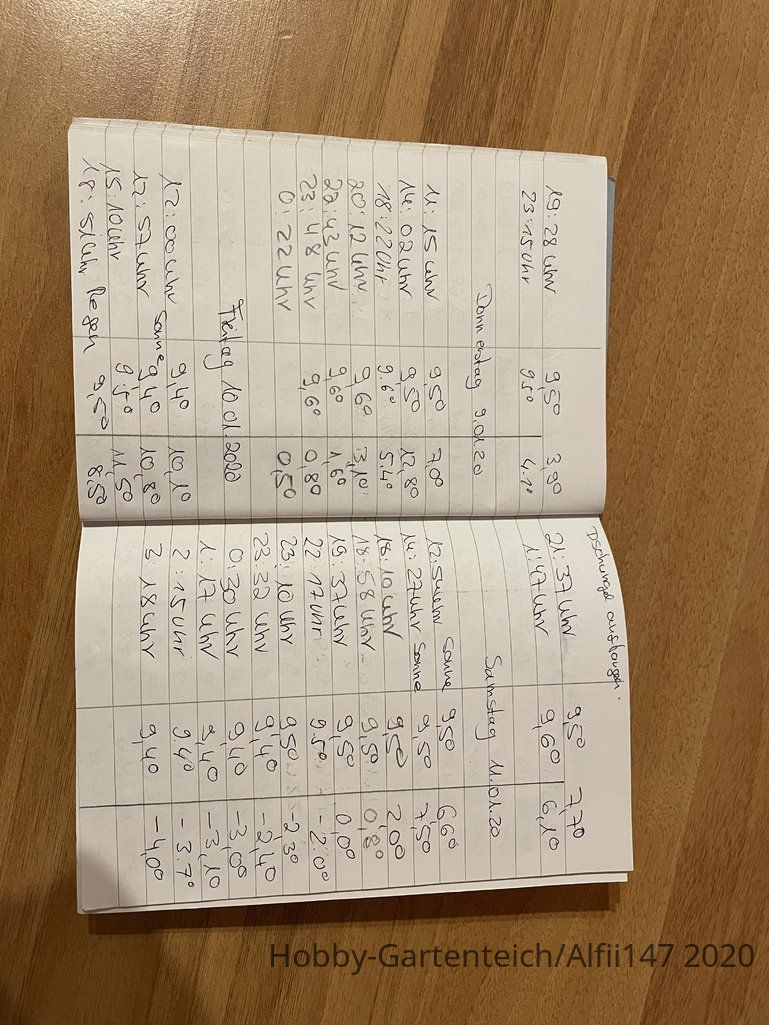 19:28 Uhr 9,5° 3,9°
23:15 Uhr 9,5° 4,1°
Donnerstag 9.01.20
11:15 Uhr 9,5° 7,0°
14:02 Uhr 9,5° 12,8°
18:22 Uhr 9.6° 5.4°
20:12 Uhr 9,6° 3,1°
22:43 Uhr 9,6° 1,6°
23:48 Uhr 9,6° 0,8°
0:22 Uhr 0,5°
Freitag 10.01.2020
12:00 Uhr 9,4° 10,1°
12:57 Uhr Sonne 9,4° 10,8°
15:10 Uhr 9,5° 11,5°
18:51 Uhr Regen 9,5° 8,5°
Dschungel
21:37 Uhr 9,5° 7,7°
1:47 Uhr 9,6° 6,1°
Samstag 11.01.20
12:54 Uhr Sonne 9,5° 6,6°
14:27 Uhr Sonne 9,5° 7,5°
18:10 Uhr 9,5° 2,0°
18:58 Uhr 9,5° 0,8°
19:37 Uhr 9,5° 0,0°
22:17 Uhr 9.5° -2.0°
23:10 Uhr 9,5° -2,3°
23:32 Uhr 9,4° -2,4°
0:30 Uhr 9,4° -3,0°
1:17 Uhr 9,4° -3,1°
2:15 Uhr 9,4° -3.7°
3:18 Uhr 9,4° -4,0°
Hobby-Gartenteich/Alfii147 2020